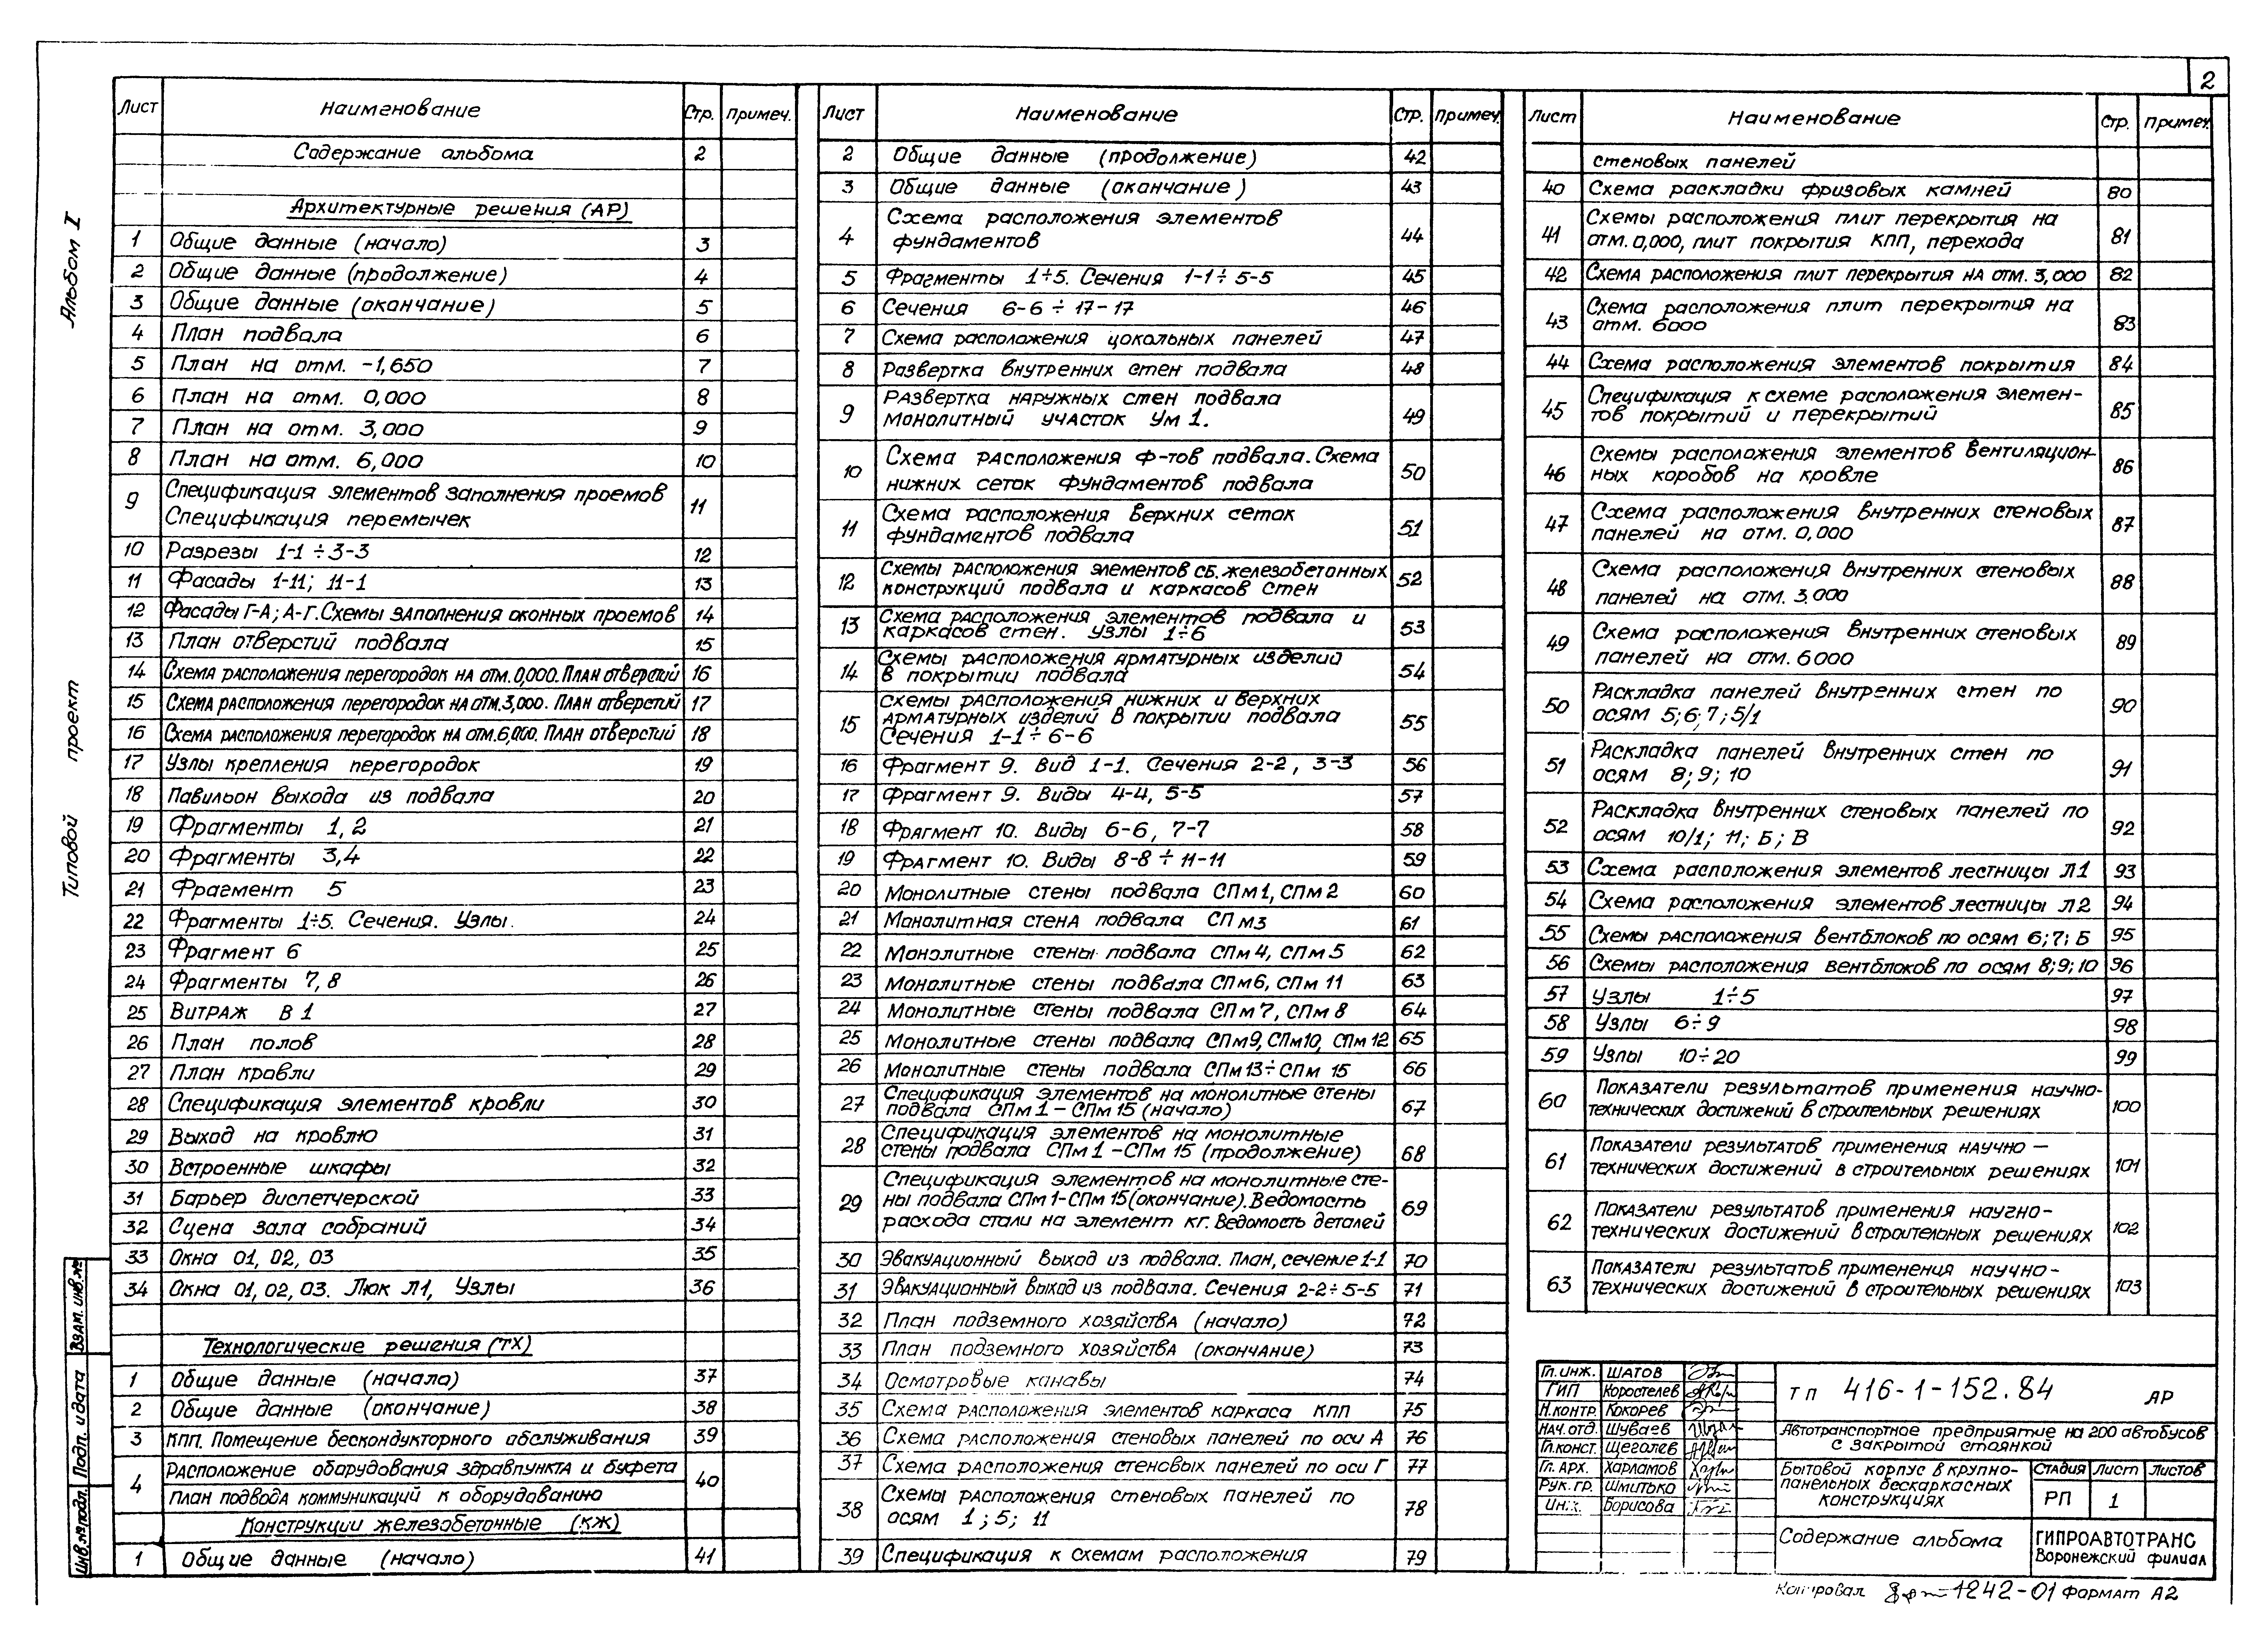 2
Альбом I
Типовой проект
Взам. инв.№
Подп. и дата
Инв.№ подл.
Лист Наименование Стр. Примеч.
Содержание альбома 2
Архитектурные решения (АР)
1 Общие данные (начало) 3
2 Общие данные (продолжение) 4
3 Общие данные (окончание) 5
4 План подвала 6
5 План на отм. -1,650 7
6 План на отм. 0,000 8
7 План на отм. 3,000 9
8 План на отм. 6,000 10
9 Спецификация элементов заполнения проемов 11
Спецификация перемычек
10 Разрезы 1-1 ÷ 3-3 12
11 Фасады 1-11; 11-1 13
12 Фасады Г-А; А-Г. Схемы заполнения оконных проемов 14
13 План отверстий подвала 15
14 Схема расположения перегородок на отм. 0,000. План отверстий 16
15 Схема расположения перегородок на отм. 3,000. План отверстий 17
16 Схема расположения перегородок на отм. 6,000. План отверстий 18
17 Узлы крепления перегородок 19
18 Павильон выхода из подвала 20
19 Фрагменты 1, 2 21
20 Фрагменты 3,4 22
21 Фрагмент 5 23
22 Фрагменты 1÷5. Сечения. Узлы. 24
23 Фрагмент 6 25
24 Фрагменты 7, 8 26
25 Витраж В 1 27
26 План полов 28
27 План кровли 29
28 Спецификация элементов кровли 30
29 Выход на кровлю 31
30 Встроенные шкафы 32
31 Барьер диспетчерской 33
32 Сцена зала собраний 34
33 Окна 01, 02, 03 35
34 Окна 01, 02, 03. Люк Л1, Узлы 36
Технологические решения (ТХ)
1 Общие данные (начало) 37
2 Общие данные (окончание) 38
3 КПП. Помещение бескондукторного обслуживания 39
4 Расположение оборудования здравпункта и буфета 40
План подвода коммуникаций к оборудованию
Конструкции железобетонные (КЖ)
1 Общие данные (начало) 41
Лист Наименование Стр. Примеч.
2 Общие данные (продолжение) 42
3 Общие данные (окончание) 43
4 Схема расположения элементов 44
фундаментов
5 Фрагменты 1÷5. Сечения 1-1 ÷ 5-5 45
6 Сечения 6-6 ÷ 17-17 46
7 Схема расположения цокольных панелей 47
8 Развертка внутренних стен подвала 48
9 Развертка наружных стен подвала 49
Монолитный участок Ум 1.
10 Схема расположения ф-тов подвала. Схема 50
нижних сеток фундаментов подвала
11 Схема расположения верхних сеток 51
фундаментов подвала
12 Схемы расположения элементов сб. железобетонных 52
конструкций подвала и каркасов стен
13 Схема расположения элементов подвала и 53
каркасов стен. Узлы 1÷6
14 Схемы расположения арматурных изделий 54
в покрытии подвала
15 Схемы расположения нижних и верхних 55
арматурных изделий в покрытии подвала
Сечения 1-1 ÷ 6-6
16 Фрагмент 9. Вид 1-1. Сечения 2-2, 3-3 56
17 Фрагмент 9. Виды 4-4, 5-5 57
18 Фрагмент 10. Виды 6-6, 7-7 58
19 Фрагмент 10. Виды 8-8 ÷ 11-11 59
20 Монолитные стены подвала СПм 1, СПм 2 60
21 Монолитная стена подвала СПм3 61
22 Монолитные стены подвала СПм 4, СПм 5 62
23 Монолитные стены подвала СПм6, СПм 11 63
24 Монолитные стены подвала СПм 7, СПм 8 64
25 Монолитные стены подвала СПм9, СПм10, СПм 12 65
26 Монолитные стены подвала СПм 13÷СПм 15 66
27 Спецификация элементов на монолитные стены 67
подвала СПм 1 – СПм 15 (начало)
28 Спецификация элементов на монолитные 68
стены подвала СПм 1 – СПм 15 (продолжение)
29 Спецификация элементов на монолитные сте- 69
ны подвала СПм 1-СПм 15 (окончание). Ведомость
расхода стали на элемент кг. Ведомость деталей
30 Эвакуационный выход из подвала. План, сечение 1-1 70
31 Эвакуационный выход из подвала. Сечения 2-2÷5-5 71
32 План подземного хозяйства (начало) 72
33 План подземного хозяйства (окончание) 73
34 Осмотровые канавы 74
35 Схема расположения элементов каркаса КПП 75
36 Схема расположения стеновых панелей по оси А 76
37 Схема расположения стеновых панелей по оси Г 77
38 Схемы расположения стеновых панелей по 78
осям 1; 5; 11
39 Спецификация к схемам расположения 79
Лист Наименование Стр. Примеч.
стеновых панелей
40 Схема раскладки фризовых камней 80
41 Схемы расположения плит перекрытия на 81
отм. 0,000, плит покрытия КПП, перехода
42 Схема расположения плит перекрытия на отм. 3,000 82
43 Схема расположения плит перекрытия на 83
отм. 6000
44 Схема расположения элементов покрытия 84
45 Спецификация к схеме расположения элемен- 85
тов покрытий и перекрытий
46 Схемы расположения элементов вентиляцион- 86
ных коробов на кровле
47 Схема расположения внутренних стеновых 87
панелей на отм. 0,000
48 Схема расположения внутренних стеновых 88
панелей на отм. 3.000
49 Схема расположения внутренних стеновых 89
панелей на отм. 6000
50 Раскладка панелей внутренних стен по 90
осям 5; 6; 7; 5/1
51 Раскладка панелей внутренних стен по 91
осям 8; 9; 10
52 Раскладка внутренних стеновых панелей по 92
осям 10/1; 11; Б; В
53 Схема расположения элементов лестницы Л1 93
54 Схема расположения элементов лестницы Л2 94
55 Схемы расположения вентблоков по осям 6; 7; Б 95
56 Схемы расположения вентблоков по осям 8; 9; 10 96
57 Узлы 1÷5 97
58 Узлы 6÷9 98
59 Узлы 10÷20 99
60 Показатели результатов применения научно- 100
технических достижений в строительных решениях
61 Показатели результатов применения научно – 101
технических достижений в строительных решениях
62 Показатели результатов применения научно- 102
технических достижений в строительных решениях
63 Показатели результатов применения научно- 103
технических достижений в строительных решениях
Гл. инж. Шатов
ГИП Коростелев
Н.контр. Кокорев
Нач. отд. Шуваев
Гл. конст. Щеголев
Гл. арх. Харламов
Рук. гр. Шмитько
Инж. Борисова
ТП 416-1-152.84 АР
Автотранспортное предприятие на 200 автобусов
с закрытой стоянкой
Бытовой корпус в крупно-
панельных бескаркасных
конструкциях
Стадия Лист Листов
РП 1
Содержание альбома
ГИПРОАВТОТРАНС
Воронежский филиал
Копировал 1242-01 Формат А2